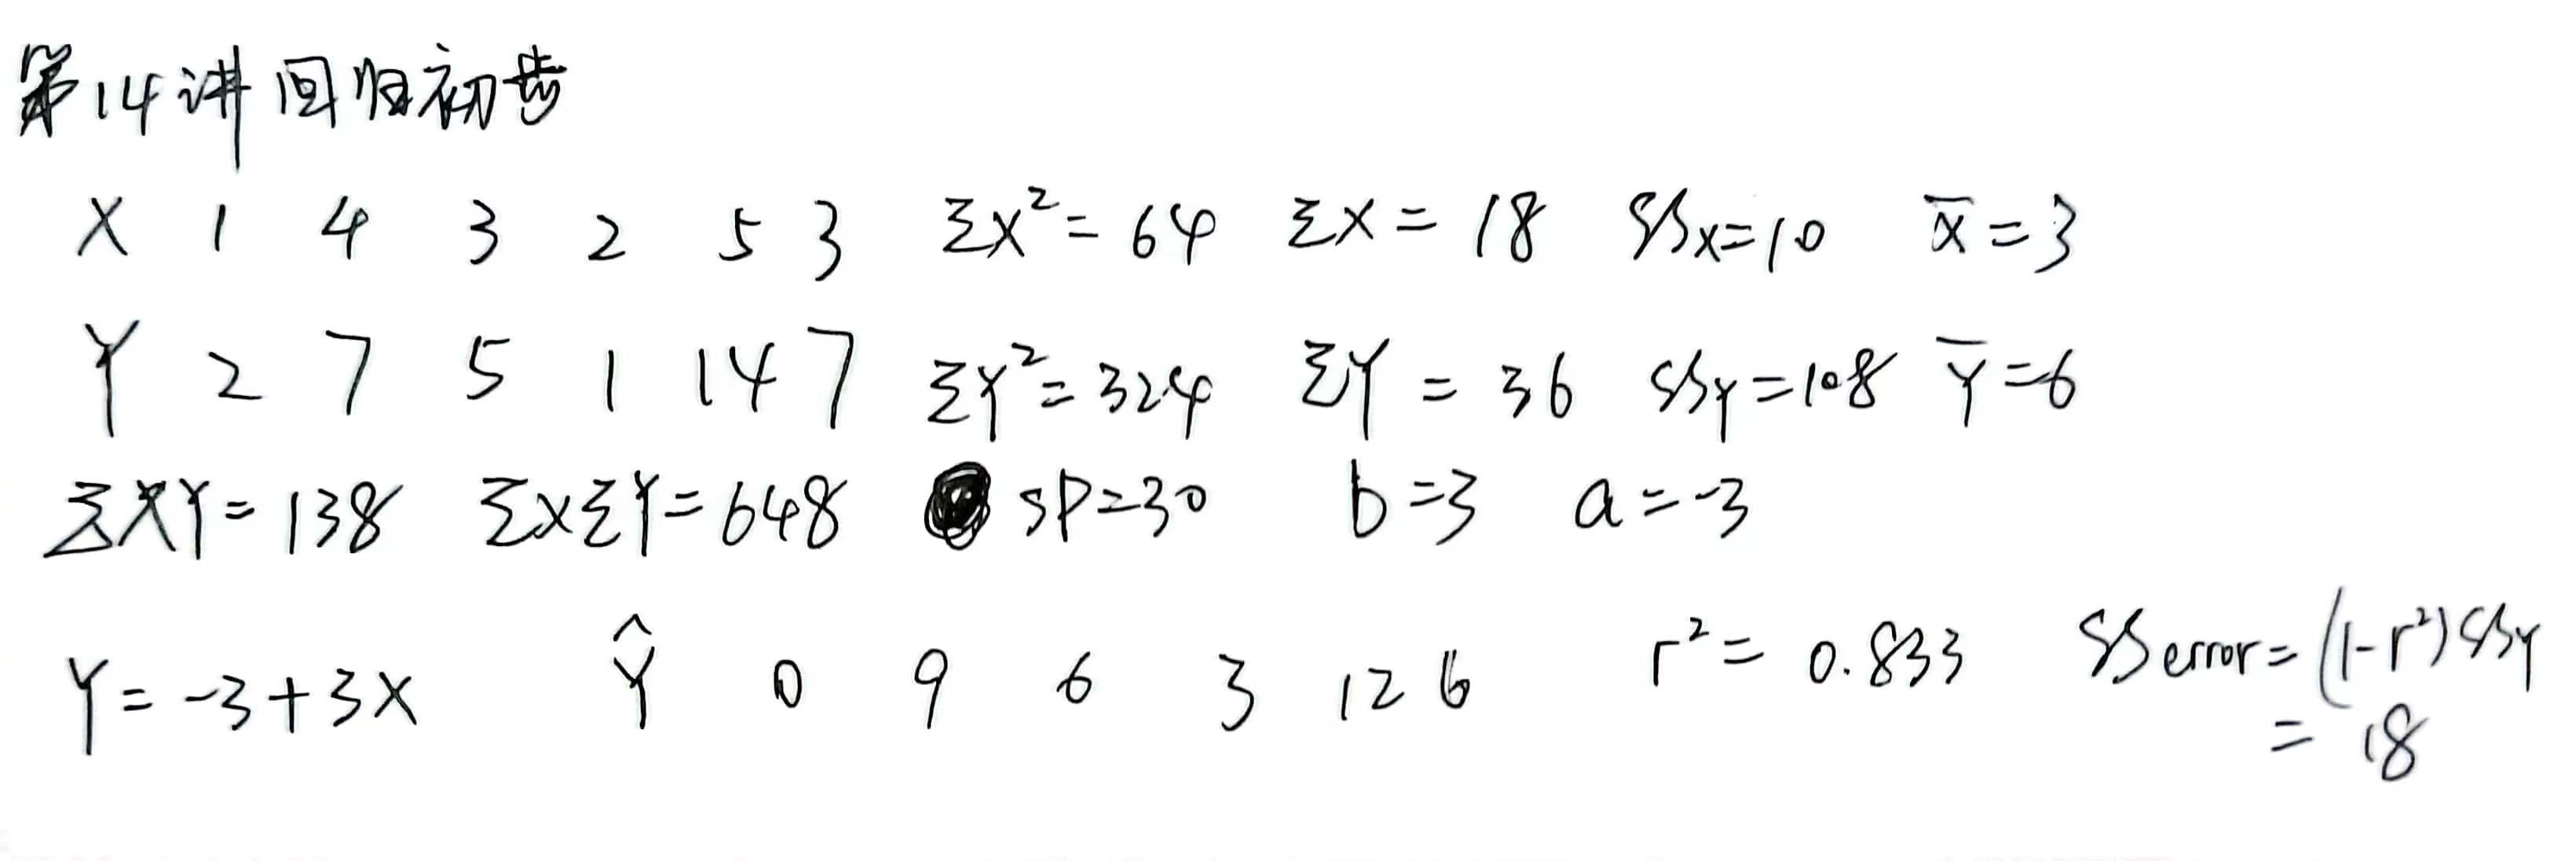 第14讲 回归初步
X 1 4 3 2 5 3 ΣX²=64 ΣX=18 SSx=10 x̄=3
Y 2 7 5 1 14 7 ΣY²=324 ΣY=36 SSY=108 Ȳ=6
ΣXY=138 ΣXΣY=648 SP=30 b=3 a=-3
Y=-3+3X Ŷ 0 9 6 3 12 6 r²=0.833 SSerror=(1-r²)SSY
=18